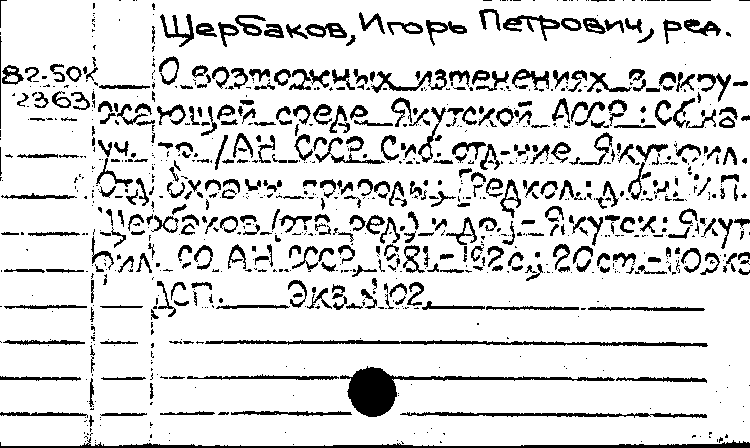 Щербаков, Игорь Петрович, ред.
82-50к О возможных изменениях в окру-
2363 жающей среде Якутской АССР : Сб. на-
уч. тр. / АН СССР. Сиб. отд-ние. Якут. фил.
Отд. охраны природы; [Редкол.: д.б.н. И.П.
Щербаков (отв. ред.) и др.] - Якутск: Якут.
фил. СО АН СССР, 1981. - 192с.; 20см. - 110экз
ДСП. Экз. №102.